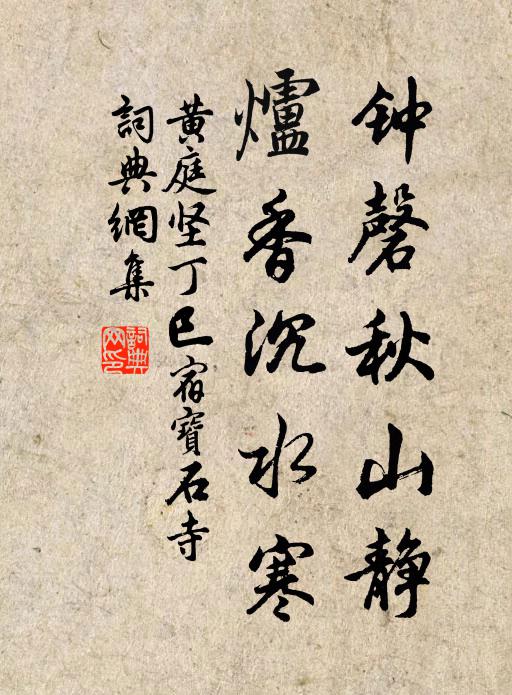 钟磬秋山静
爐香沉水寒
黄庭坚丁巳宿寶石寺
詞典網集
詞典网印